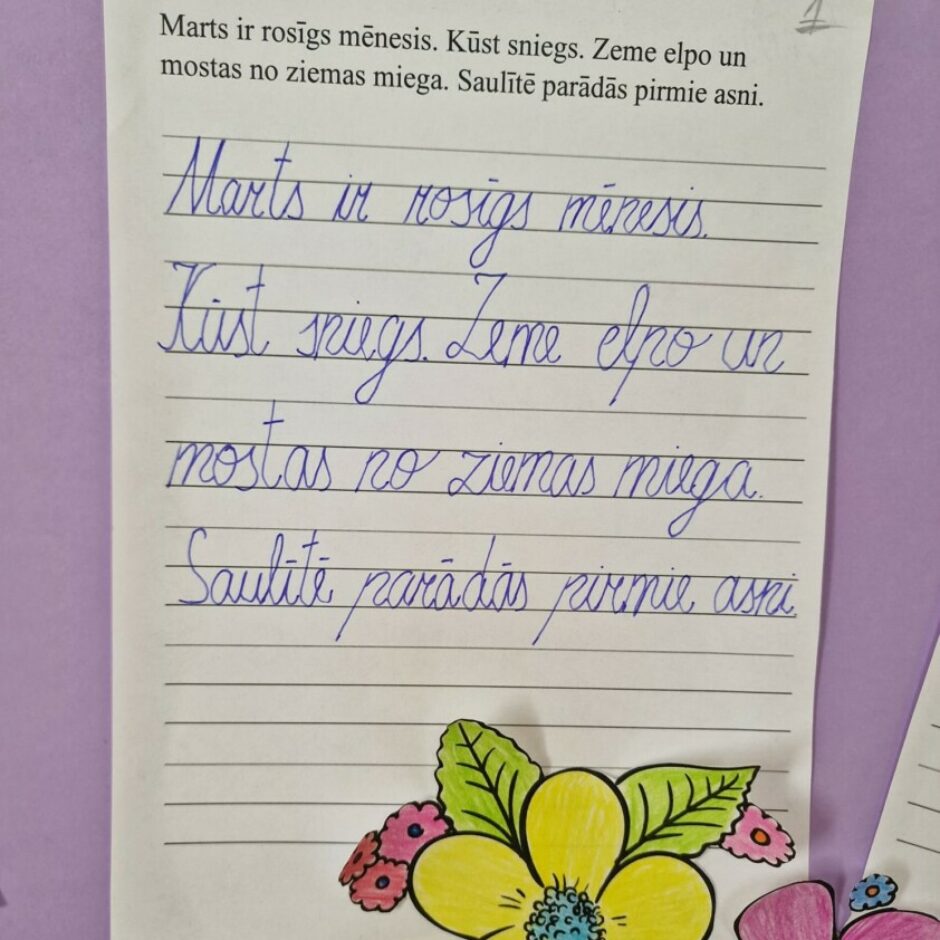 1
Marts ir rosīgs mēnesis. Kūst sniegs. Zeme elpo un
mostas no ziemas miega. Saulītē parādās pirmie asni.
Marts ir rosīgs mēnesis.
Kūst sniegs. Zeme elpo un
mostas no ziemas miega.
Saulītē parādās pirmie asni.